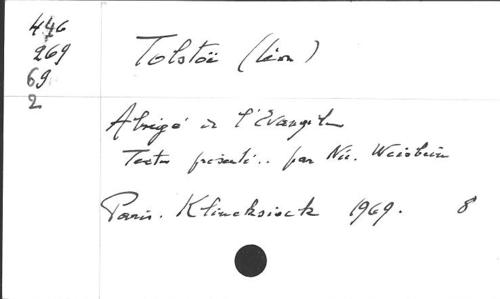 446
269
69
2
Tolstoï (Léon)
Abrégé de l'Evangile
Texte présenté.. par Nic. Weisbein
Paris. Klincksieck 1969. 8